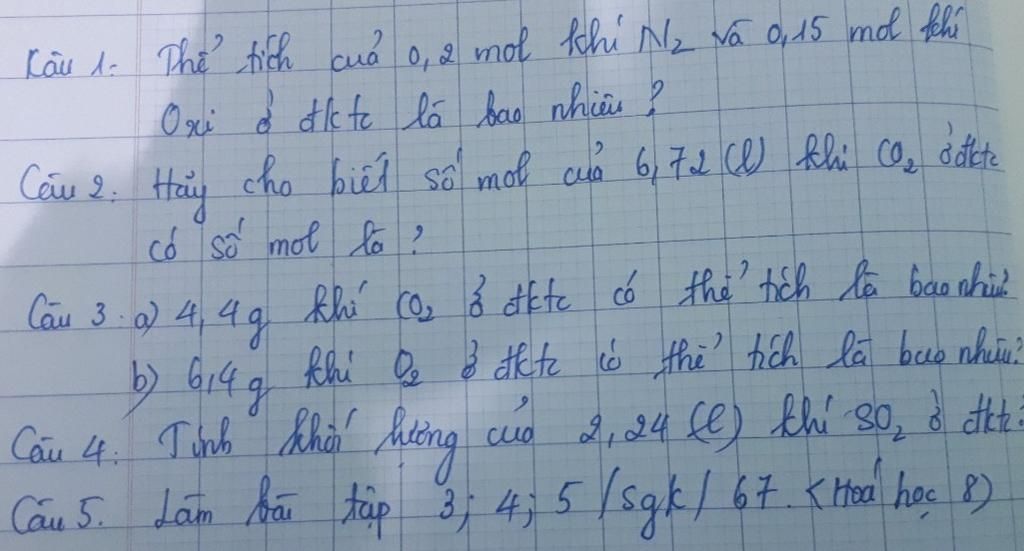 Câu 1: Thể tích của 0,2 mol khí N2 và 0,15 mol khí
Oxi ở đktc là bao nhiêu?
Câu 2: Hãy cho biết số mol của 6,72 (l) khí CO2 ở đktc
có số mol là?
Câu 3: a) 4,4g khí CO2 ở đktc có thể tích là bao nhiêu?
b) 6,4g khí O2 ở đktc có thể tích là bao nhiêu?
Câu 4: Tính khối lượng của 2,24 (l) khí SO2 ở đktc?
Câu 5. Làm bài tập 3; 4; 5 /sgk/ 67. (Hoá học 8)